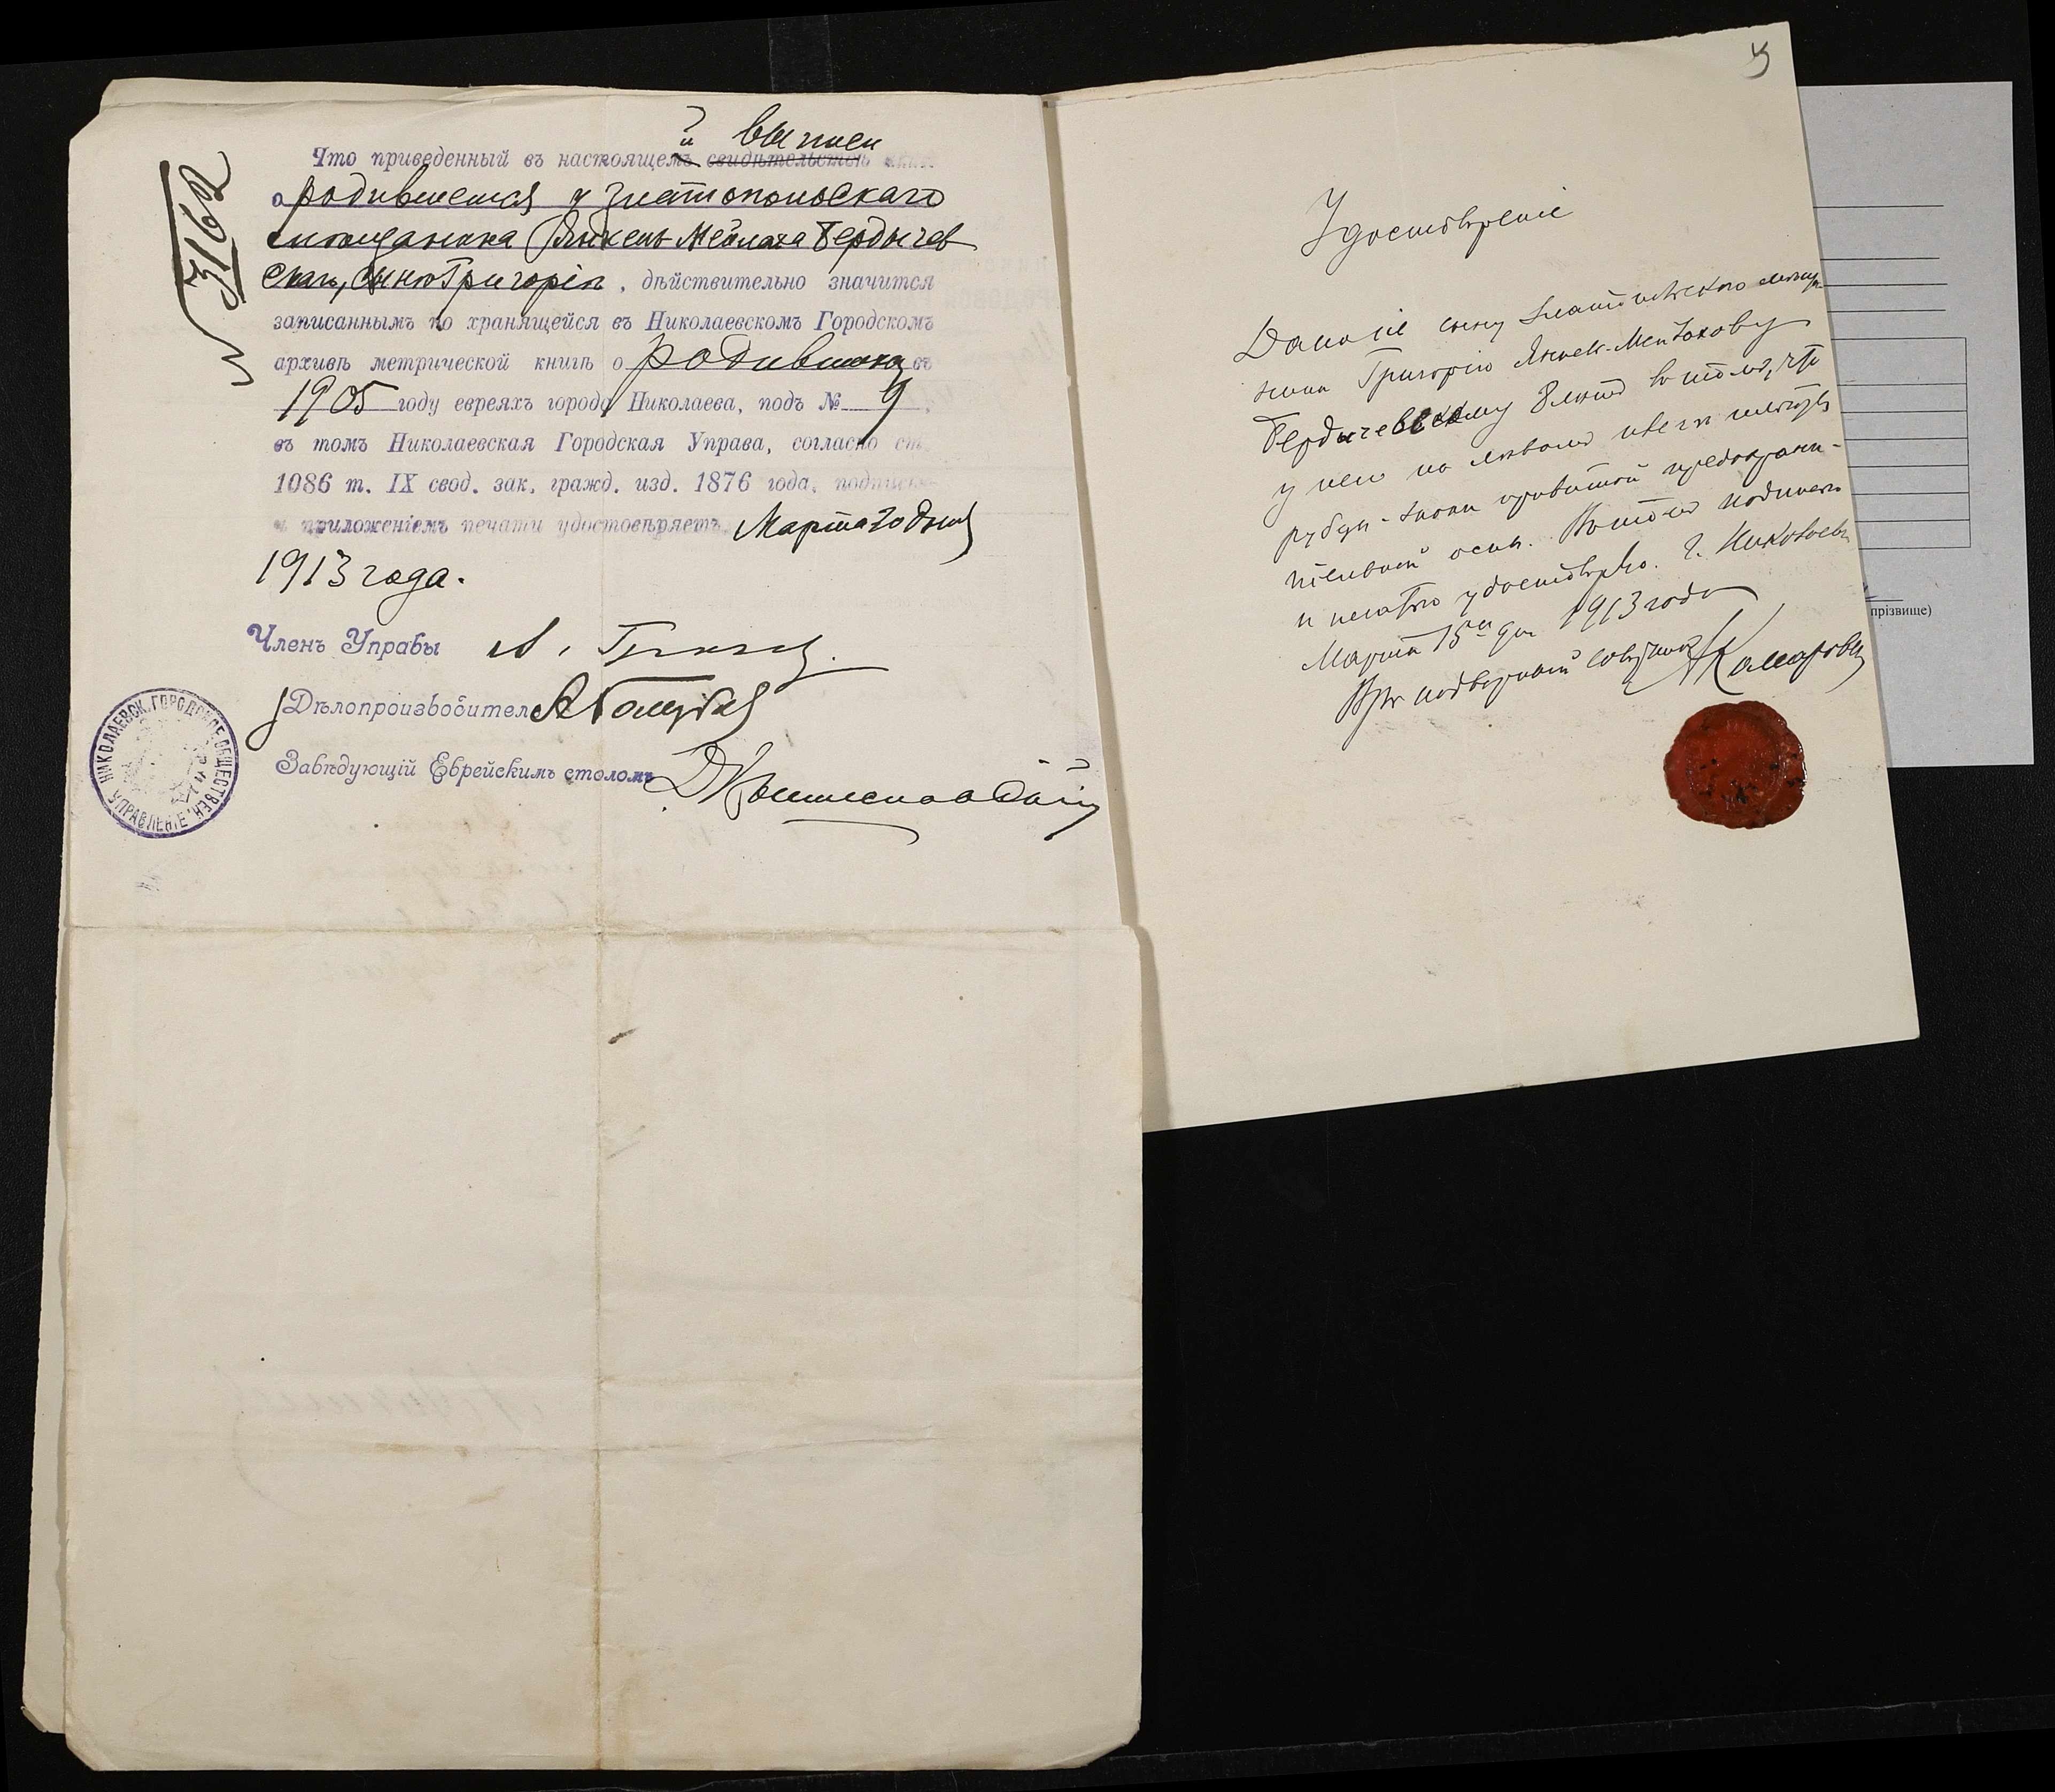 № 3162
й выписи
Что приведенный въ настоящемъ свидѣтельствѣ
о родившемся у Златопольскаго
мѣщанина Янкель-Мейлаха Бердычев
скаго, сынѣ Григоріи, дѣйствительно значится
записаннымъ по хранящейся въ Николаевскомъ Городскомъ
архивѣ метрической книгѣ о родившихся въ
1905 году евреяхъ города Николаева, подъ № 9,
въ томъ Николаевская Городская Управа, согласно ст.
1086 т. IX свод. зак. гражд. изд. 1876 года, подписью
и приложеніемъ печати удостовѣряетъ. Марта 20 дня
1913 года.
Членъ Управы
Дѣлопроизводитель
Завѣдующій Еврейскимъ столомъ
НИКОЛАЕВСК. ГОРОДСКОЕ ОБЩЕСТВЕН. УПРАВЛЕНІЕ
5
Удостовѣреніе
Дано сіе сыну Златопольского мѣща-
нина Григорію Янкель-Мейлахову
Бердичевскому 8 лѣтъ въ томъ, что
у него на лѣвомъ плечѣ имѣются
рубцы - знаки привитой предохрани-
тельной оспы. Въ томъ подписью
и печатью удостовѣряю. г. Николаевъ
Марта 15го дня 1913 года
Врачъ надворный совѣтникъ
прізвище)